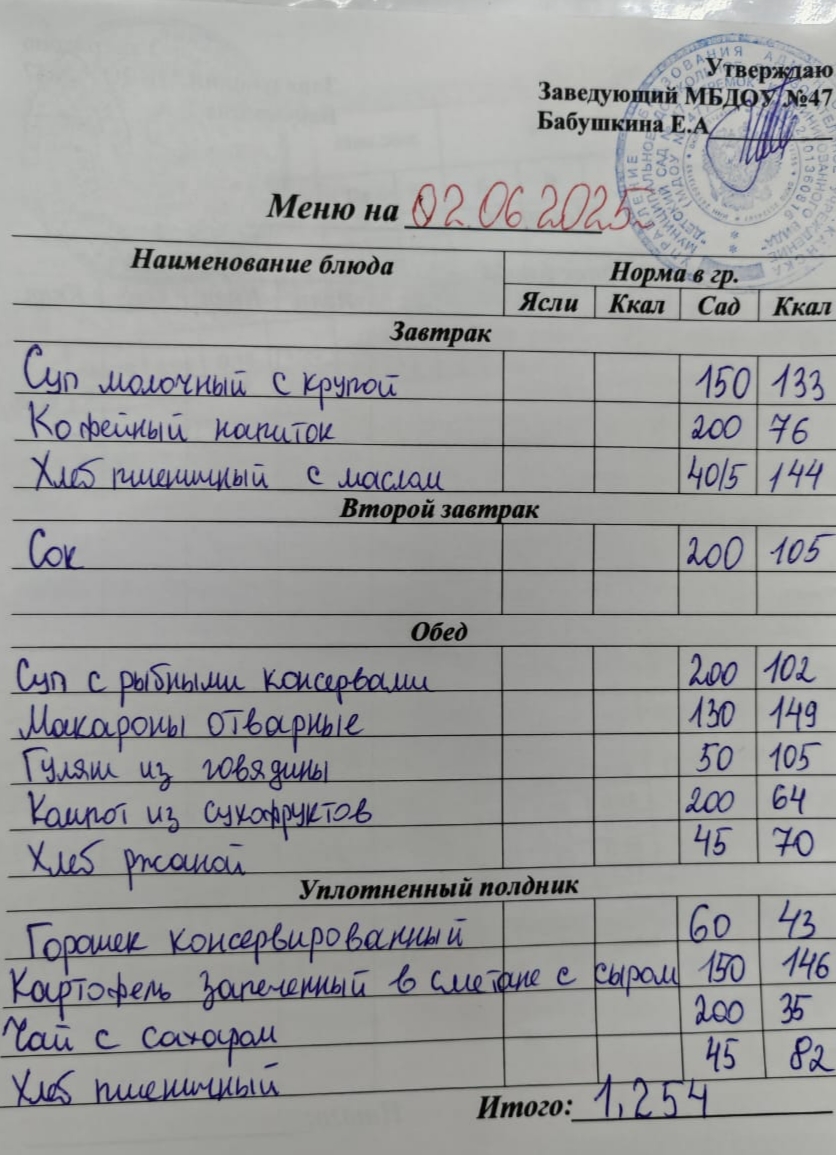 Утверждаю
Заведующий МБДОУ №47
Бабушкина Е.А
Меню на 02.06.2025
Наименование блюда Норма в гр.
Ясли Ккал Сад Ккал
Завтрак
Суп молочный с крупой 150 133
Кофейный напиток 200 76
Хлеб пшеничный с маслом 40/5 144
Второй завтрак
Сок 200 105
Обед
Суп с рыбными консервами 200 102
Макароны отварные 130 149
Гуляш из говядины 50 105
Компот из сухофруктов 200 64
Хлеб ржаной 45 70
Уплотненный полдник
Горошек консервированный 60 43
Картофель запеченный в сметане с сыром 150 146
Чай с сахаром 200 35
Хлеб пшеничный 45 82
Итого: 1,254